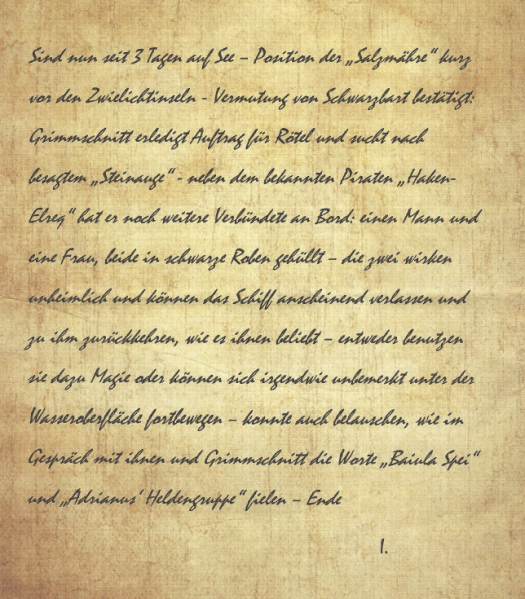 Sind nun seit 3 Tagen auf See – Position der „Salzmähre“ kurz
vor den Zwielichtinseln - Vermutung von Schwarzbart bestätigt:
Grimmschnitt erledigt Auftrag für Rötel und sucht nach
besagtem „Steinauge“ - neben dem bekannten Piraten „Haken-
Elreq“ hat er noch weitere Verbündete an Bord: einen Mann und
eine Frau, beide in schwarze Roben gehüllt – die zwei wirken
unheimlich und können das Schiff anscheinend verlassen und
zu ihm zurückkehren, wie es ihnen beliebt – entweder benutzen
sie dazu Magie oder können sich irgendwie unbemerkt unter der
Wasseroberfläche fortbewegen – konnte auch belauschen, wie im
Gespräch mit ihnen und Grimmschnitt die Worte „Baiula Spei“
und „Adrianus' Heldengruppe“ fielen – Ende
I.